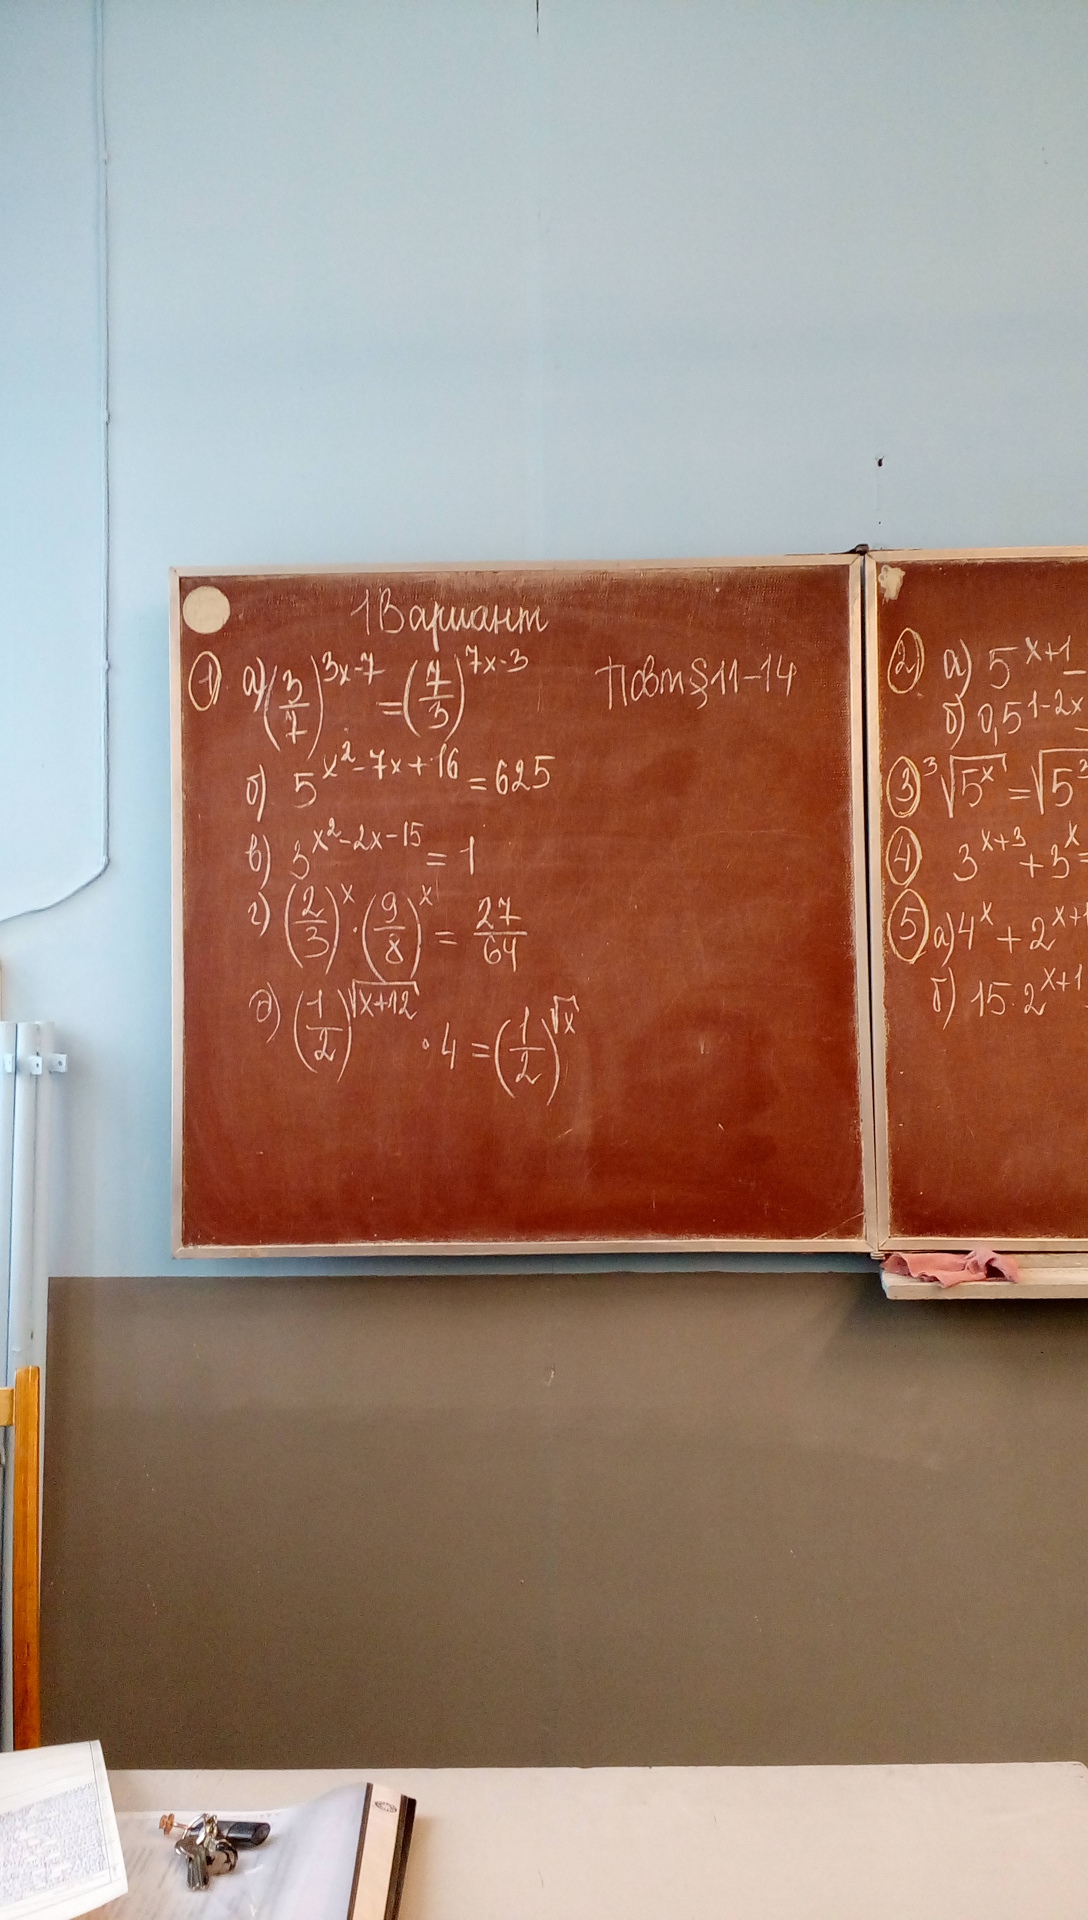 1 Вариант
① а) (3/7)^(3x-7) = (7/3)^(7x-3)
Повт § 11-14
б) 5^(x²-7x+16) = 625
в) 3^(x²-2x-15) = 1
г) (2/3)^x · (9/8)^x = 27/64
д) (1/2)^√(x+12) · 4 = (1/2)^√x
② а) 5^(x+1)
б) 0,5^(1-2x)
③ ³√(5^x) = √5
④ 3^(x+3) + 3^x =
⑤ а) 4^x + 2^(x+1)
б) 15·2^(x+1)